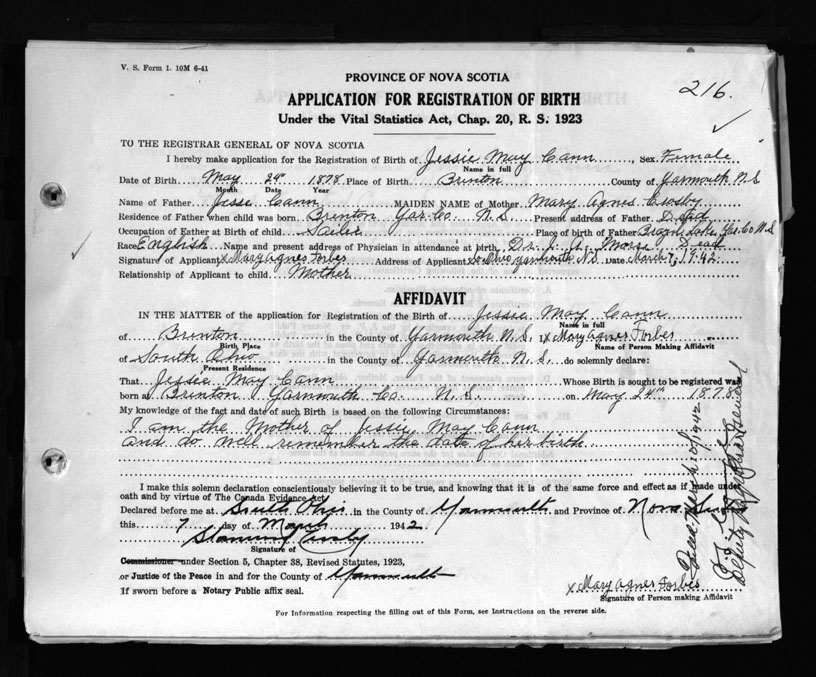 V. S. Form 1. 10M 6-41
216.
PROVINCE OF NOVA SCOTIA
APPLICATION FOR REGISTRATION OF BIRTH
Under the Vital Statistics Act, Chap. 20, R. S. 1923
TO THE REGISTRAR GENERAL OF NOVA SCOTIA
I hereby make application for the Registration of Birth of Jessie May Cann, Sex Female
Name in full
Date of Birth May 24th 1878 Place of Birth Brenton County of Yarmouth N S
Month Date Year
Name of Father Jesse Cann MAIDEN NAME of Mother Mary Agnes Crosby
Residence of Father when child was born Brenton Yar. Co. N. S. Present address of Father Dead
Occupation of Father at Birth of child Sailor Place of birth of Father Brazil Lake, Yar. Co N.S
Race English Name and present address of Physician in attendance at birth Dr. J. A. Morse, Dead
Signature of Applicant x Mary Agnes Forbes Address of Applicant So. Ohio Yarmouth N.S. Date March 7, 1942
Relationship of Applicant to child Mother
AFFIDAVIT
IN THE MATTER of the application for Registration of the Birth of Jessie May Cann
Name in full
of Brenton in the County of Yarmouth N. S. I x Mary Agnes Forbes
Birth Place Name of Person Making Affidavit
of South Ohio in the County of Yarmouth N. S. do solemnly declare:
Present Residence
That Jessie May Cann Whose Birth is sought to be registered was
born at Brenton Yarmouth Co. N. S. on May 24th 1878
My knowledge of the fact and date of such Birth is based on the following Circumstances:
I am the Mother of Jessie May Cann
and do well remember the date of her birth
I make this solemn declaration conscientiously believing it to be true, and knowing that it is of the same force and effect as if made under
oath and by virtue of The Canada Evidence Act
Declared before me at South Ohio in the County of Yarmouth and Province of Nova Scotia
this 7 day of March 1942
Crosby
Signature of
Commissioner under Section 5, Chapter 38, Revised Statutes, 1923,
or Justice of the Peace in and for the County of Yarmouth
If sworn before a Notary Public affix seal.
x Mary Agnes Forbes
Signature of Person making Affidavit
For Information respecting the filling out of this Form, see Instructions on the reverse side.
March 10/1942
Deputy Registrar General